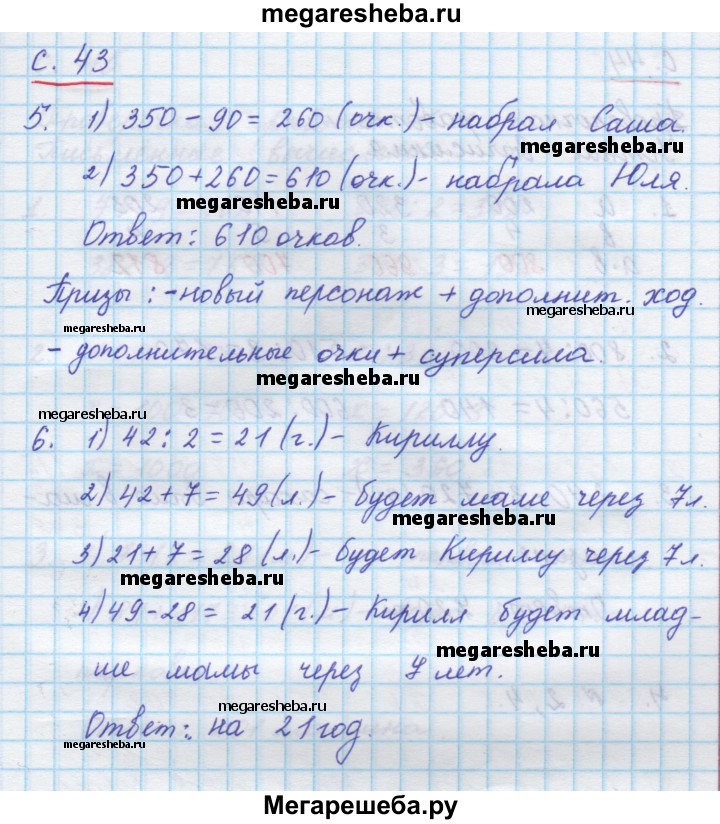 megaresheba.ru
с. 43
5. 1) 350 - 90 = 260 (очк.) - набрал Саша.
megaresheba.ru
2) 350 + 260 = 610 (очк.) - набрала Юля.
megaresheba.ru
Ответ: 610 очков.
Призы: - новый персонаж + дополнит. ход.
megaresheba.ru
megaresheba.ru
- дополнительные очки + суперсила.
megaresheba.ru
megaresheba.ru
6. 1) 42 : 2 = 21 (г.) - Кириллу.
2) 42 + 7 = 49 (л.) - будет маме через 7 л.
megaresheba.ru
3) 21 + 7 = 28 (л.) - будет Кириллу через 7 л.
megaresheba.ru
4) 49 - 28 = 21 (г.) - Кирилл будет млад-
megaresheba.ru
ше мамы через 7 лет.
megaresheba.ru
Ответ: на 21 год.
megaresheba.ru
megaresheba.ru
Мегарешеба.ру